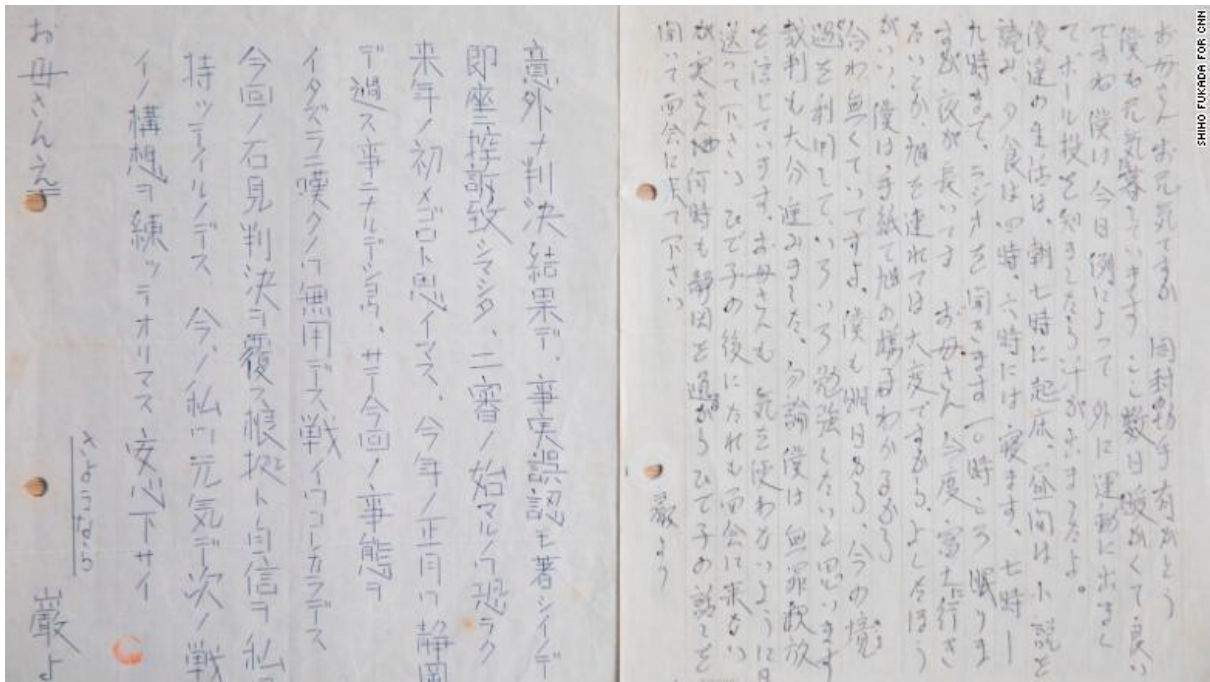 お母さんお元気ですか 岡村 切手有がとう
僕も元気で暮ています ここ数日暖かくて良い
ですね僕は今日例によって外に運動に出まし
てボール投を知ましたら汗が出ましたよ。
僕達の生活は、朝七時に起床、昼間は小説を
読み、夕食は四時、六時には寝ます、七時|
九時まで、ラジオを聞きます一〇時ころ眠りま
すが夜が長いです お母さん 今度富士行き
たいとか、旭を連れては大変ですから、よしたほう
がいい、僕は手紙で旭の様子わかるから
今わ無くていいですよ、僕も明日から 今の境
遇を利用して、いろいろ勉強したいと思います
裁判も大分進みました、勿論僕は無罪釈放
を信じています、お母さんも 気を使わないように日
送って下さい ひで子の後にだれも面会に来ない
が 実さん 何時も静岡を通がらひで子の話しを
聞いて面会に来て下さい
巌より
意外ナ判決結果デ、事実誤認モ著シイノデ
即座ニ控訴致シマシタ、二審ノ始マルノワ恐ラク
来年ノ初メゴロト思イマス、今年ノ正月ワ静岡
デ過ス事ニナルデショウ、サテ今回ノ事態ヲ
イタズラニ嘆クノワ無用デス、戦イワコレカラデス
今回ノ石見判決ヲ覆ス根拠ト自信ヲ私ワ
持ッテイルノデス、今ノ私ワ元気デ次ノ戦
イノ構想ヲ練ッテオリマス安心下サイ
さようなら
巌よ
お母さんえ
SHIHO FUKADA FOR CNN